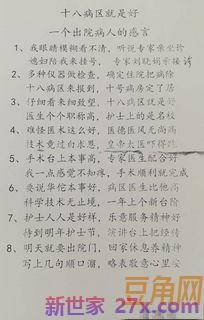 十八病区就是好
一个出院病人的感言
1、我眼睛模糊看不清，听说专家亲坐诊
媳妇陪我来挂号，专家刘晓娟亲接诊
2、多种仪器做检查，确定住院把病除
十八病区来报到，十号病房定下居
3、仔细看来细致望，十八病区就是好
医生个个职称高，护士上的是名校
4、难怪医术这么好，医德医风无尚高
技术竟过白求恩，皇帝太医吓得跑
5、手术台上本事高，专家医生配合好
我一点感觉不知疼，手术顺利就完成
6、要说华佗本事好，病区医生比他高
科学技术无止境，一年上个新台阶
7、护士人人是好样，乐意服务精神好
待到明年护士节，演讲台上把经传
8、明天就要出院门，回家休息养精神
写上几句顺口溜，略表敬意心里安
豆角网
新世家 27x.com